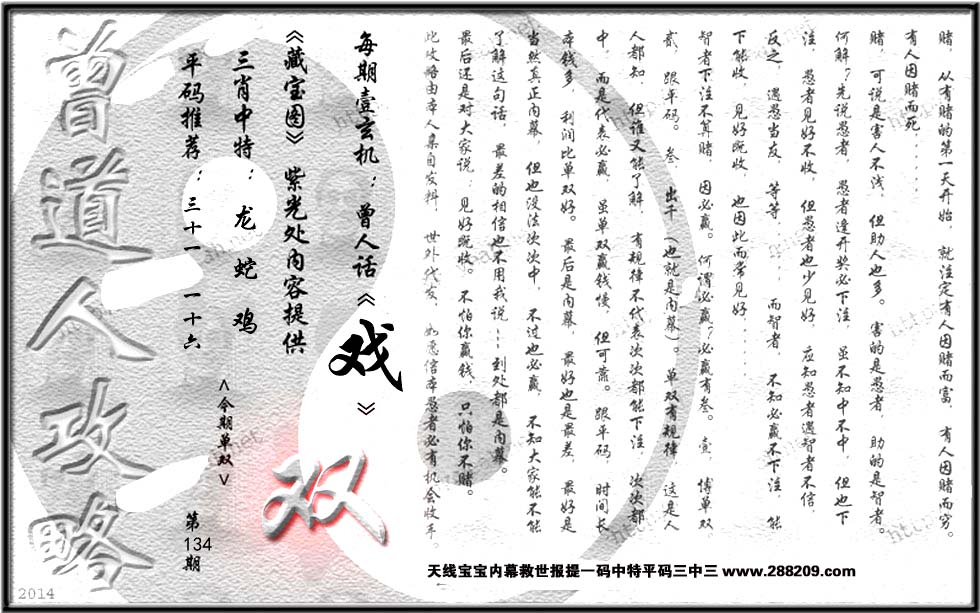 赌，从有赌的第一天开始，就注定有人因赌而富，有人因赌而穷。
有人因赌而死……
赌，可说是害人不浅，但助人也多。害的是愚者，助的是智者。
何解？先说愚者，愚者逢开奖必下注，虽不知中不中，但也下
注，愚者见好不收，但愚者也少见好，应知愚者遇智者不信，
反之，遇愚当友，等等……而智者，不知必赢不下注，能
下能收，见好既收，也因此而常见好……
智者下注不算赌，因必赢。何谓必赢？必赢有叁。壹，博单双，
贰，跟平码。叁，出千（也就是内幕）。单双有规律，这是人
人都知，但谁又能了解，有规律不代表次次都能下注，次次都
中，而是代表必赢，虽单双赢钱慢，但可靠。跟平码，时间长，
本钱多，利润比单双好。最后是内幕，最好也是最差，最好是
当然真正内幕，但也没法次次中，不过也必赢，不知大家能不能
了解这句话，最差的相信也不用我说……到处都是内幕。
最后还是对大家说：见好既收。不怕你赢钱，只怕你不赌。
此攻略由本人集自发料，世外代发，如愿信本愚者必有机会收手。
每期壹玄机：曾人话《戏》
《藏宝图》紫光处内容提供
三肖中特：龙 蛇 鸡
平码推荐：三十一 一十六
<今期单双>
双
第134期
曾道人攻略
天线宝宝内幕救世报提一码中特平码三中三 www.288209.com
2014